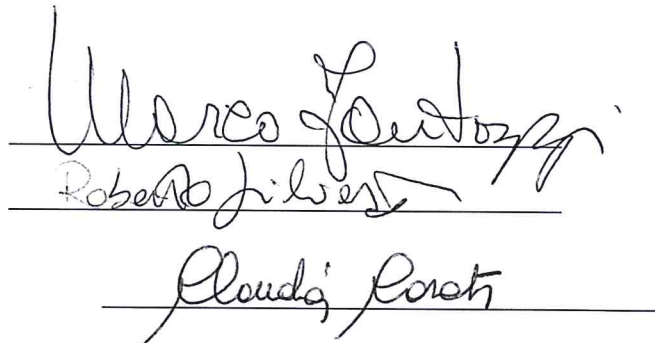 Marco Fantozzi
Roberto Silvestri
Claudia